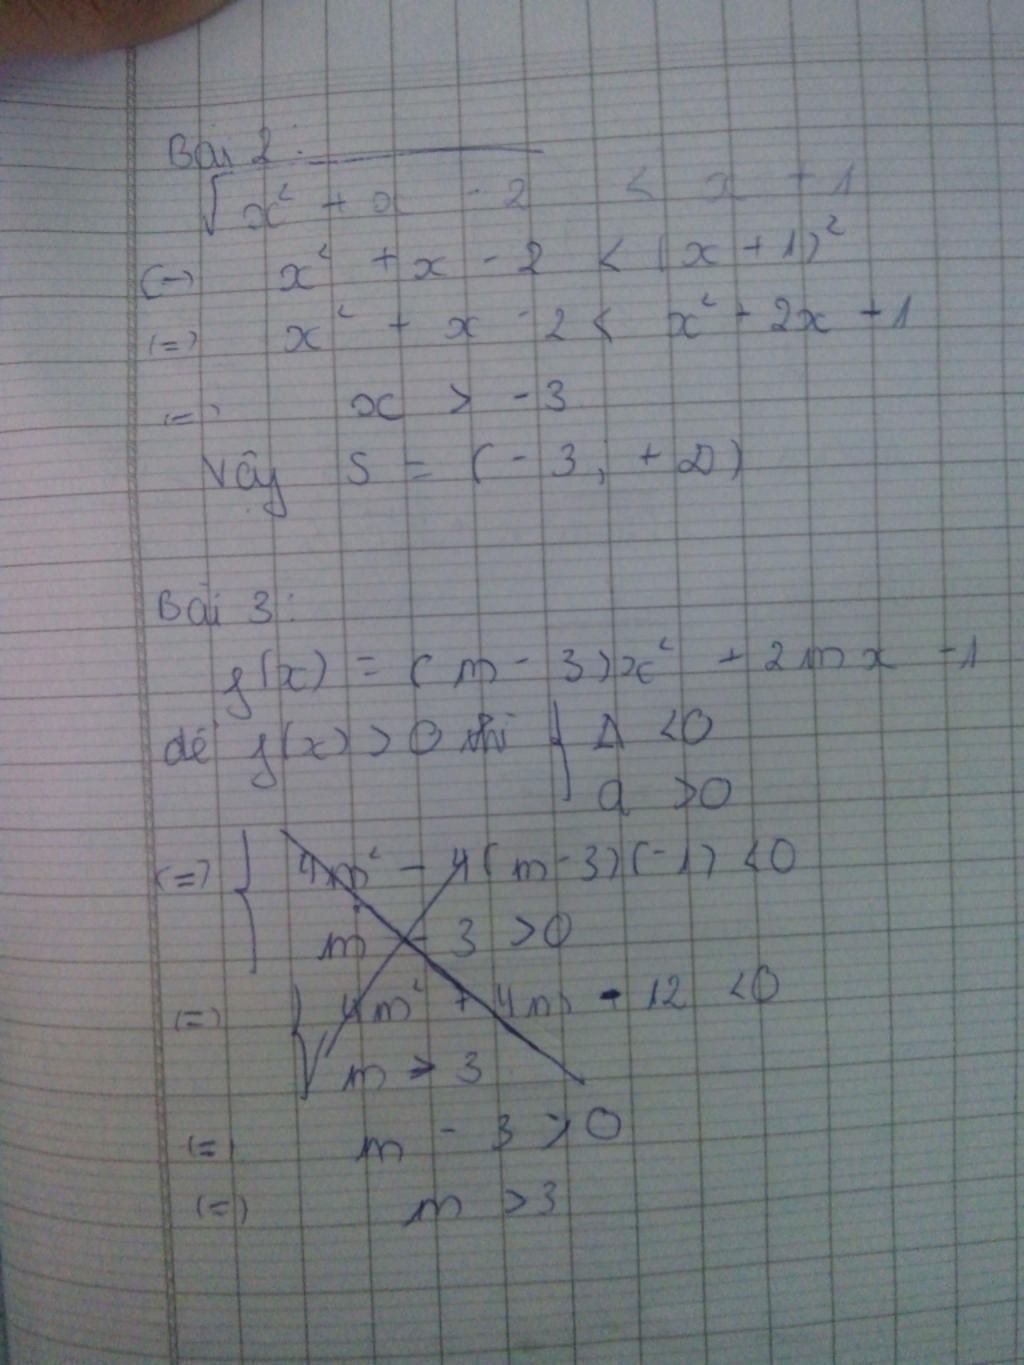 Bài 2:
√x² + x - 2 < x + 1
(=) x² + x - 2 < (x + 1)²
(=) x² + x - 2 < x² + 2x + 1
(=) x > -3
Vậy S = (-3; +∞)
Bài 3:
f(x) = (m - 3)x² + 2mx - 1
để f(x) > 0 thì { Δ < 0
a > 0
(=) { 4m² - 4(m - 3)(-1) < 0
m - 3 > 0
(=) { 4m² + 4m - 12 < 0
m > 3
(=) m - 3 > 0
(=) m > 3